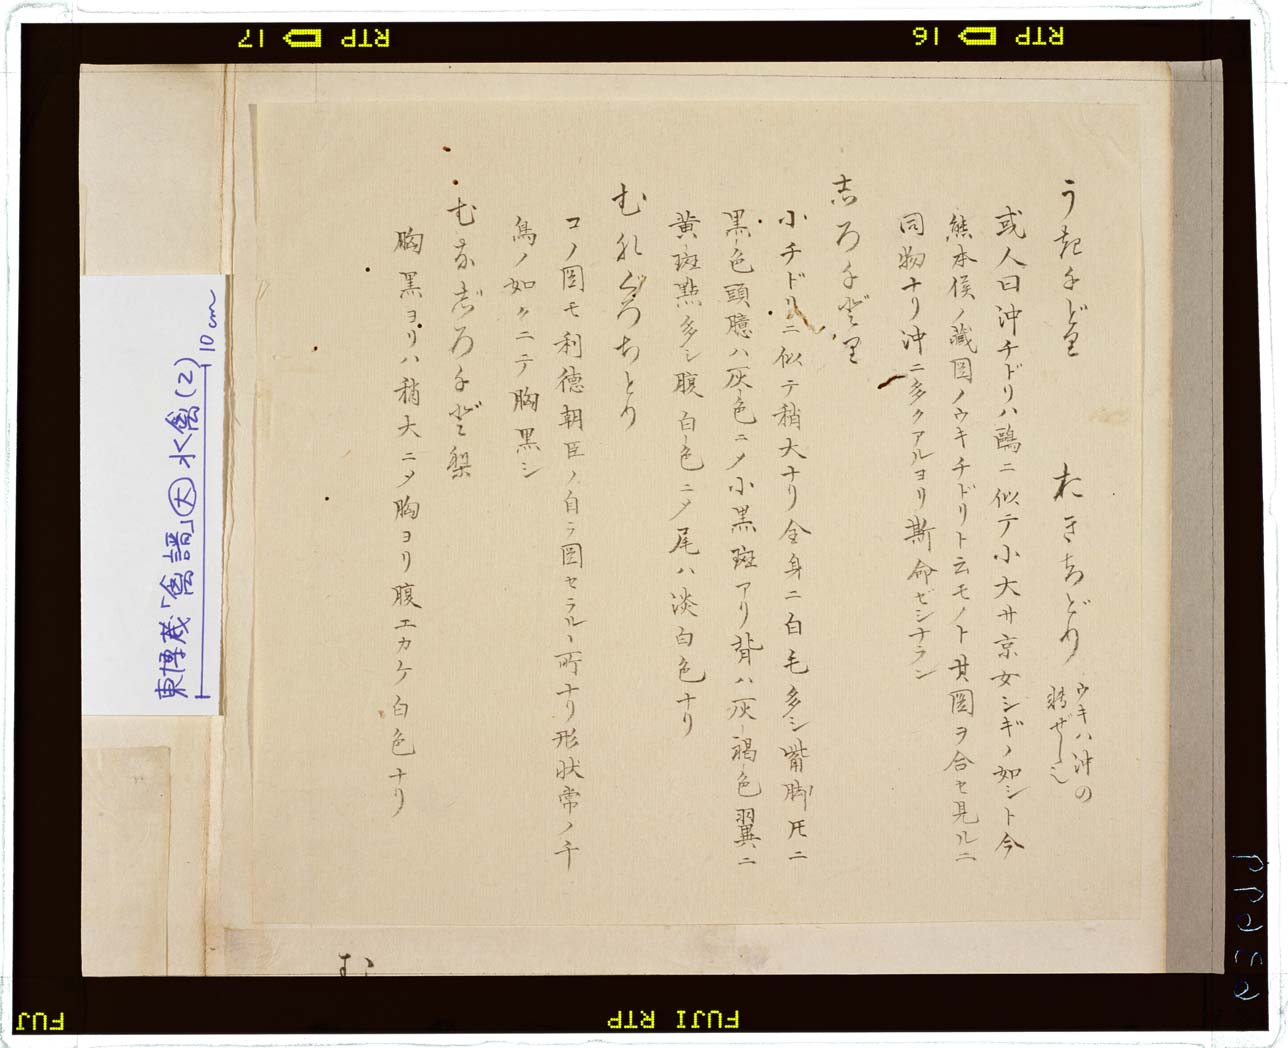 うきちどり　おきちどり　ウキハ沖の
転ぜしも
或人曰沖チドリハ鷗ニ似テ小大サ京女シギノ如シト今
熊本侯ノ蔵図ノウキチドリト云モノト其図ヲ合セ見ルニ
同物ナリ沖ニ多クアルヨリ斯命ゼシナラン
志ろちどり
小チドリニ似テ稍大ナリ全身ニ白毛多シ嘴脚圧ニ
黒色頭臆ハ灰色ニメ小黒斑アリ背ハ灰褐色翼ニ
黄斑點多シ腹白色ニメ尾ハ淡白色ナリ
むれぐろちとり
コノ図モ利徳朝臣ノ自ラ図セラルヽ所ナリ形状常ノ千
鳥ノ如クニテ胸黒シ
むなじろちどり
胸黒ヨリハ稍大ニメ胸ヨリ腹エカケ白色ナリ
む
東博蔵「禽譜」大水禽(2)
10cm
17 RTP
16 RTP
FUJI RTP
FUJ